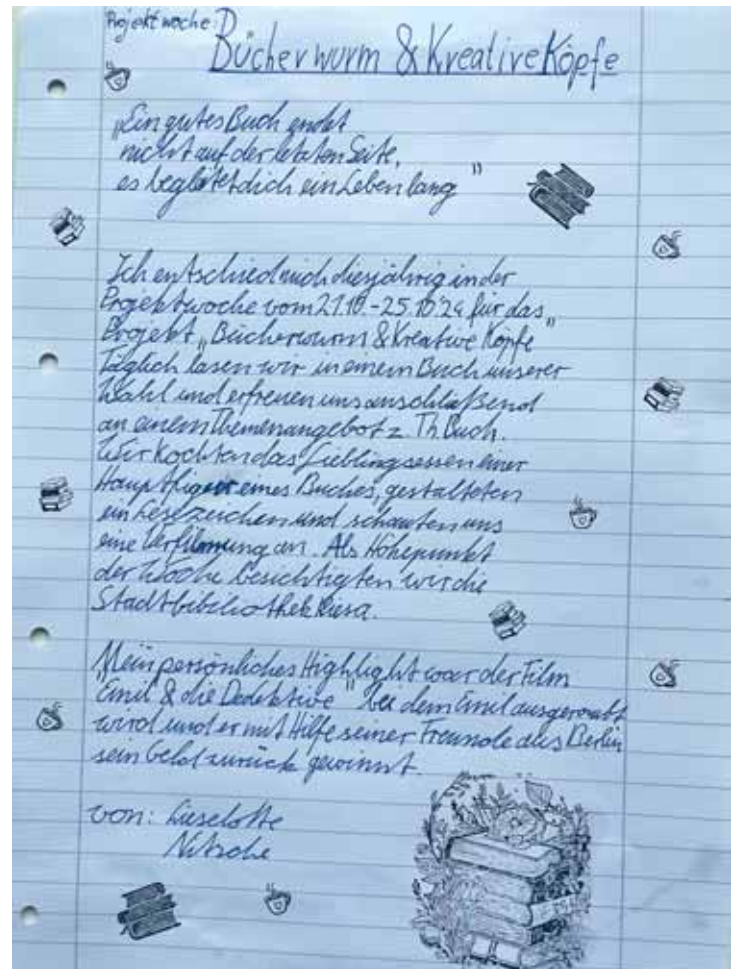 Projektwoche:
Bücherwurm & Kreative Köpfe
„Ein gutes Buch endet
nicht auf der letzten Seite,
es begleitet dich ein Leben lang "
Ich entschied mich diesjährig in der
Projektwoche vom 21.10.-25.10.24 für das
Projekt „Bücherwurm & Kreative Köpfe"
Täglich lasen wir in einem Buch unserer
Wahl und erfreuen uns anschließend
an einem Themenangebot z. Th. Buch.
Wir kochten das Lieblingsessen einer
Hauptfigur eines Buches, gestalteten
ein Lesezeichen und schauten uns
eine Verfilmung an. Als Höhepunkt
der Woche besichtigten wir die
Stadtbibliothek Riesa.
Mein persönliches Highlight war der Film
"Emil & die Dedektive" bei dem Emil ausgeraubt
wird und er mit Hilfe seiner Freunde aus Berlin
sein Geld zurück gewinnt.
von: Lieselotte
Nitzsche